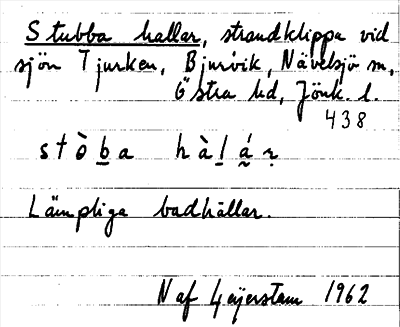 Stubba hallar, strandklippa vid
sjön Tjurken, Bjurvik, Nävelsjö sn,
Östra hd, Jönk. l.
438
stòba hàláṛ
Lämpliga badhällar.
N af Geijerstam 1962